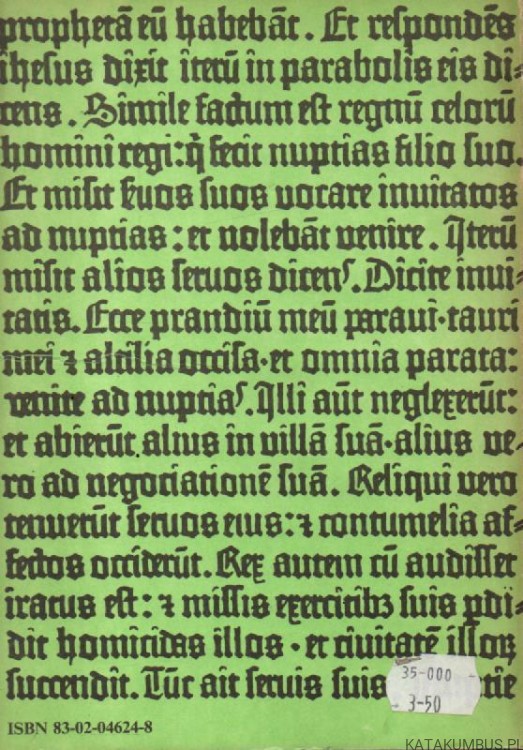 prophetā eū habebāt. Et respondēs
ihesus dixit iterū in parabolis eis di-
cens. Simile factum est regnū celorū
homini regi: q̄ fecit nuptias filio suo.
Et misit s̄uos suos vocare invitatos
ad nuptias: et nolebāt venire. Iterū
misit alios servos dicens. Dicite invi-
tatis. Ecce prandiū meū paravi·tauri
mei ⁊ altilia occisa·et omnia parata:
venite ad nuptias. Illi aūt neglexerūt:
et abierūt.alius in villā suā·alius ve-
ro ad negociationē suā. Reliqui vero
tenuerūt servos eius: ⁊ contumelia af-
fectos occiderūt. Rex autem cū audisset
iratus est: ⁊ missis exercitibꝫ suis ꝑdi-
dit homicidas illos·et civitatē illoꝝ
succendit. Tūc ait servis suis
35-000
3-50
ISBN 83-02-04624-8
KATAKUMBUS.PL